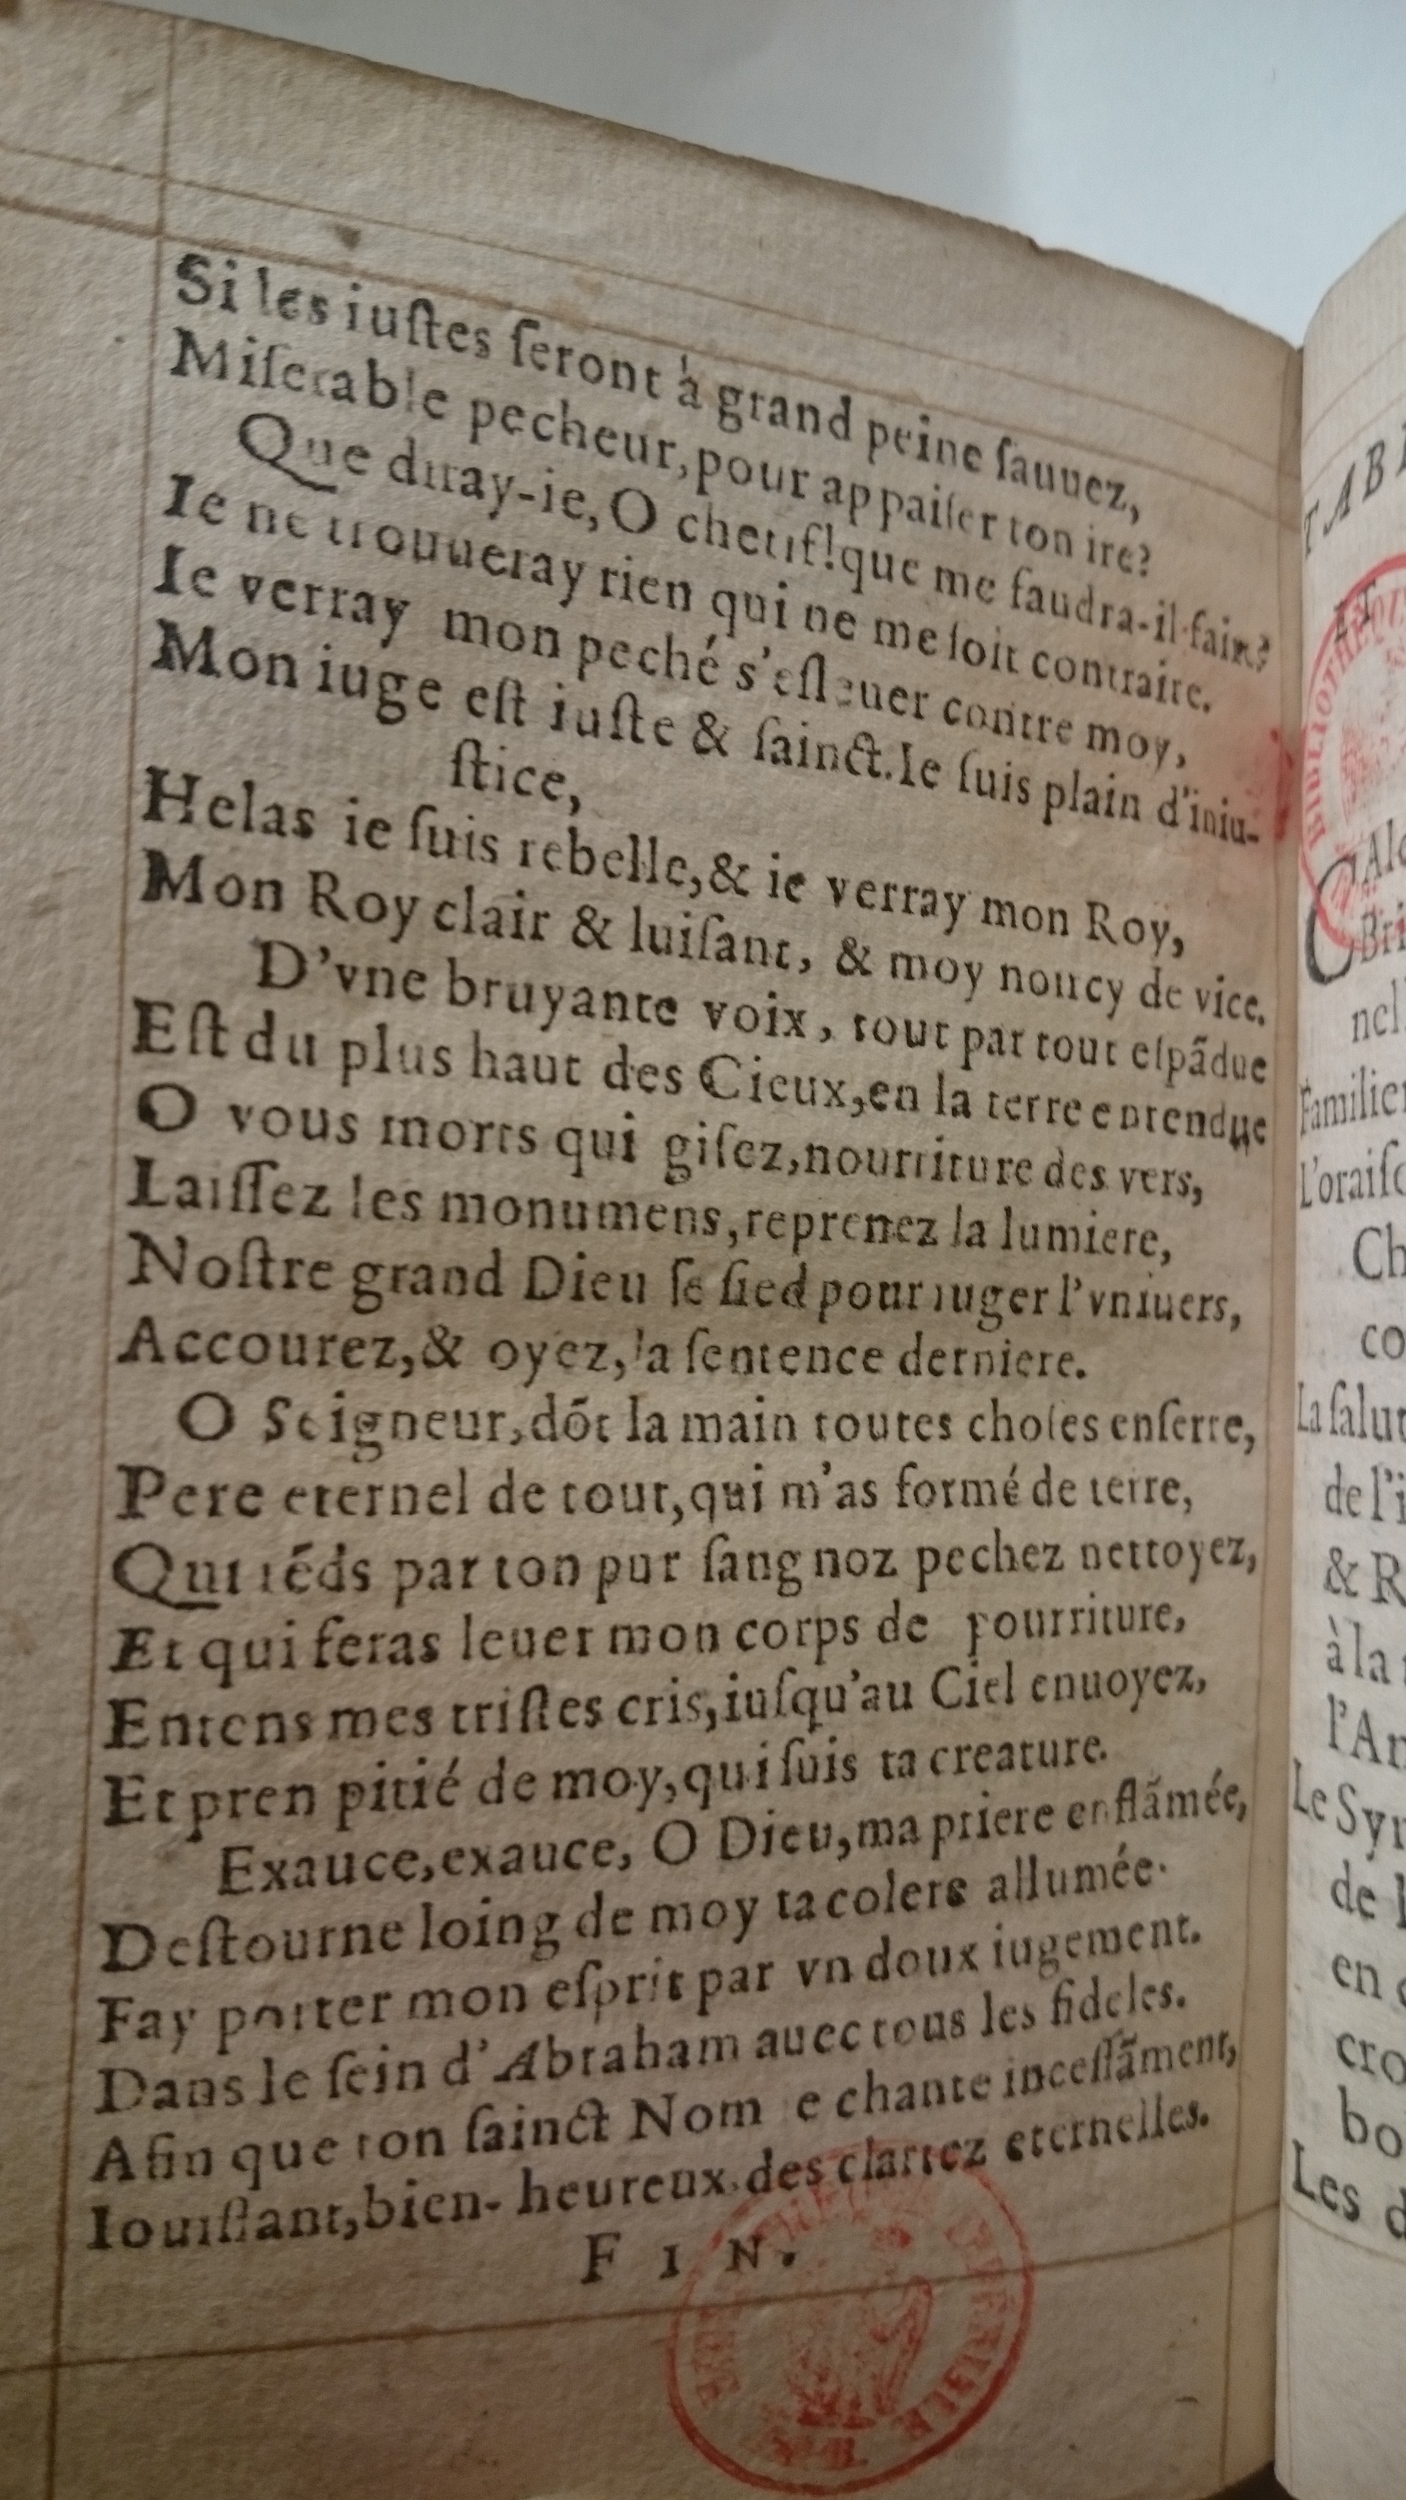 Si les iuſtes ſeront à grand peine ſauuez,
Miſerable pecheur, pour appaiſer ton ire?
Que diray-ie, O chetif! que me faudra-il faire?
Ie ne trouueray rien qui ne me ſoit contraire.
Ie verray mon peché s'eſleuer contre moy,
Mon iuge eſt iuſte & ſainct. Ie ſuis plain d'iniu-
ſtice,
Helas ie ſuis rebelle, & ie verray mon Roy,
Mon Roy clair & luiſant, & moy noircy de vice.
D'vne bruyante voix, tout par tout eſpãdue
Eſt du plus haut des Cieux, en la terre entendue
O vous morts qui giſez, nourriture des vers,
Laiſſez les monumens, reprenez la lumiere,
Noſtre grand Dieu ſe ſied pour iuger l'vniuers,
Accourez, & oyez, la ſentence derniere.
O Seigneur, dõt la main toutes choſes enſerre,
Pere eternel de tout, qui m'as formé de terre,
Qui rẽds par ton pur ſang noz pechez nettoyez,
Et qui feras leuer mon corps de pourriture,
Entens mes triſtes cris, iuſqu'au Ciel enuoyez,
Et pren pitié de moy, qui ſuis ta creature.
Exauce, exauce, O Dieu, ma priere enflãmée,
Deſtourne loing de moy ta colere allumée.
Fay porter mon eſprit par vn doux iugement.
Dans le ſein d'Abraham auec tous les fideles.
Afin que ton ſainct Nom e chante inceſſãment,
Iouiſſant, bien-heureux des clartez eternelles.
F I N.
TAB
Bri
nel
Familier
L'oraiſo
Ch
co
La ſalut
de l'i
& R
à la
l'An
Le Sy
de
en
cro
bo
Les d